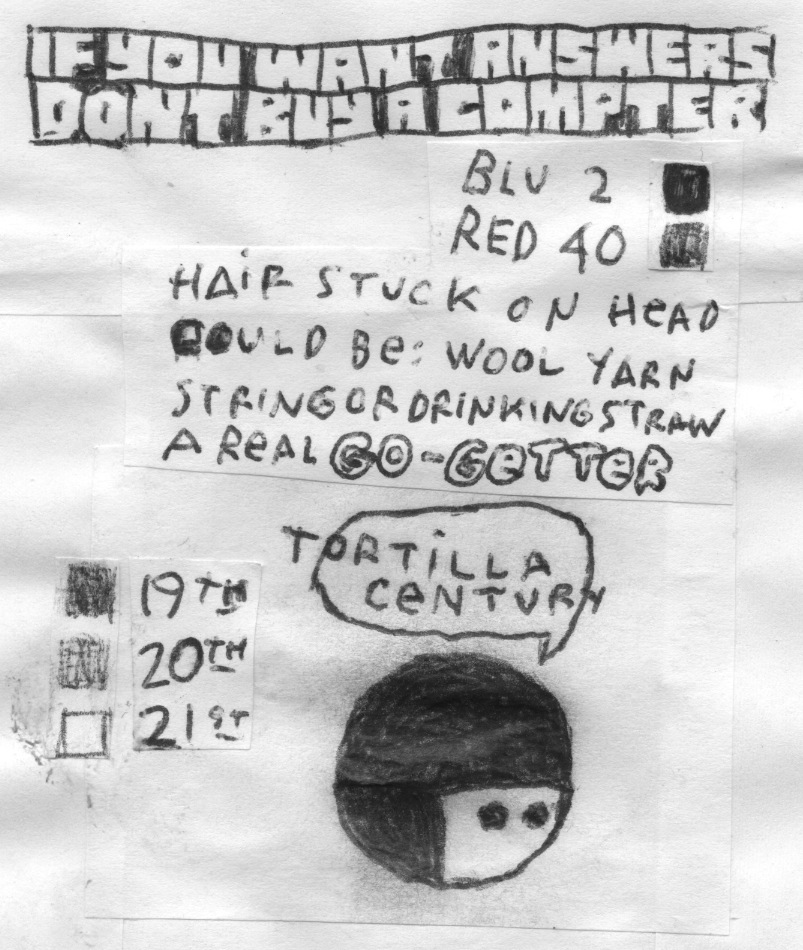 IF YOU WANT ANSWERS
DON'T BUY A COMPTER
BLU 2
RED 40
HAiR STUCK ON HeAD
COULD Be: WOOL YARN
STRiNG OR DRiNKiNG STRAW
A ReAL GO-GeTTeR
TORTiLLA
CeNTURY
19TH
20TH
21ST